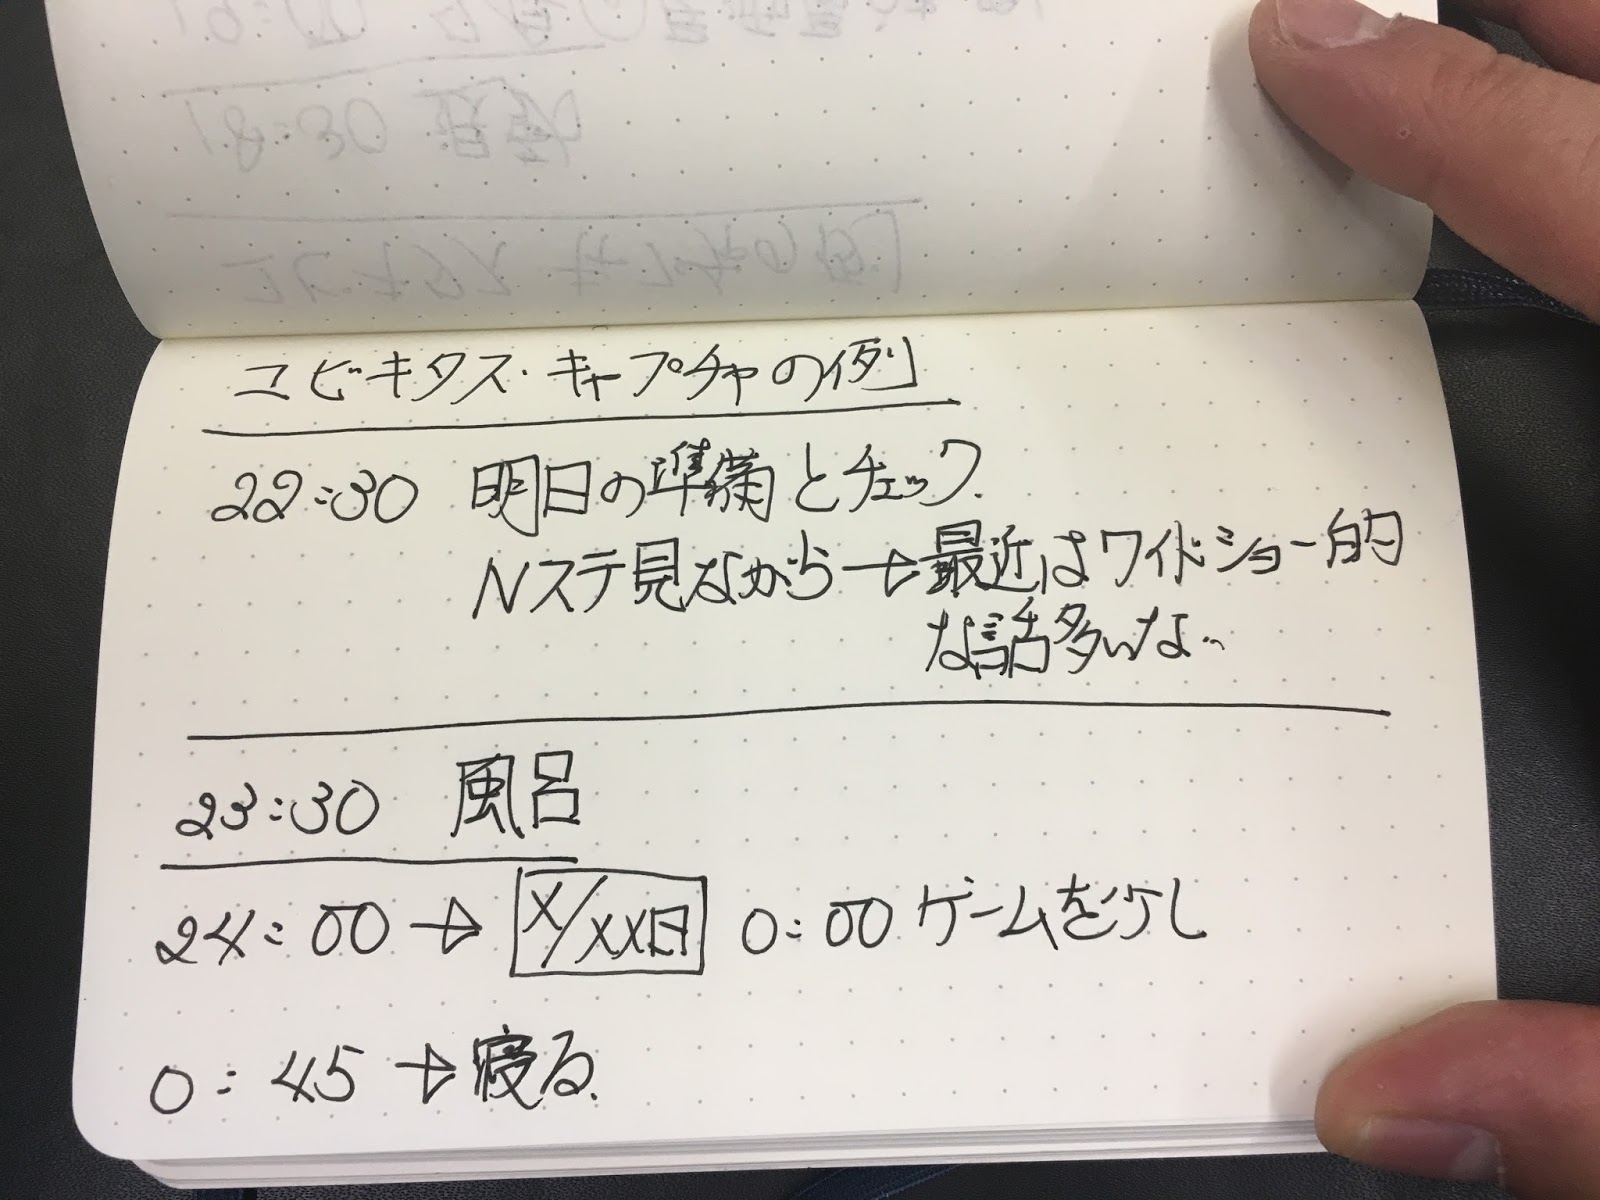 ユビキタス・キャプチャの例
22:30 明日の準備とチェック.
Nステ見ながら→最近はワイドショー的
な話多いな..
23:30 風呂
24:00 → X/XX日 0:00 ゲームを少し
0:45 → 寝る.